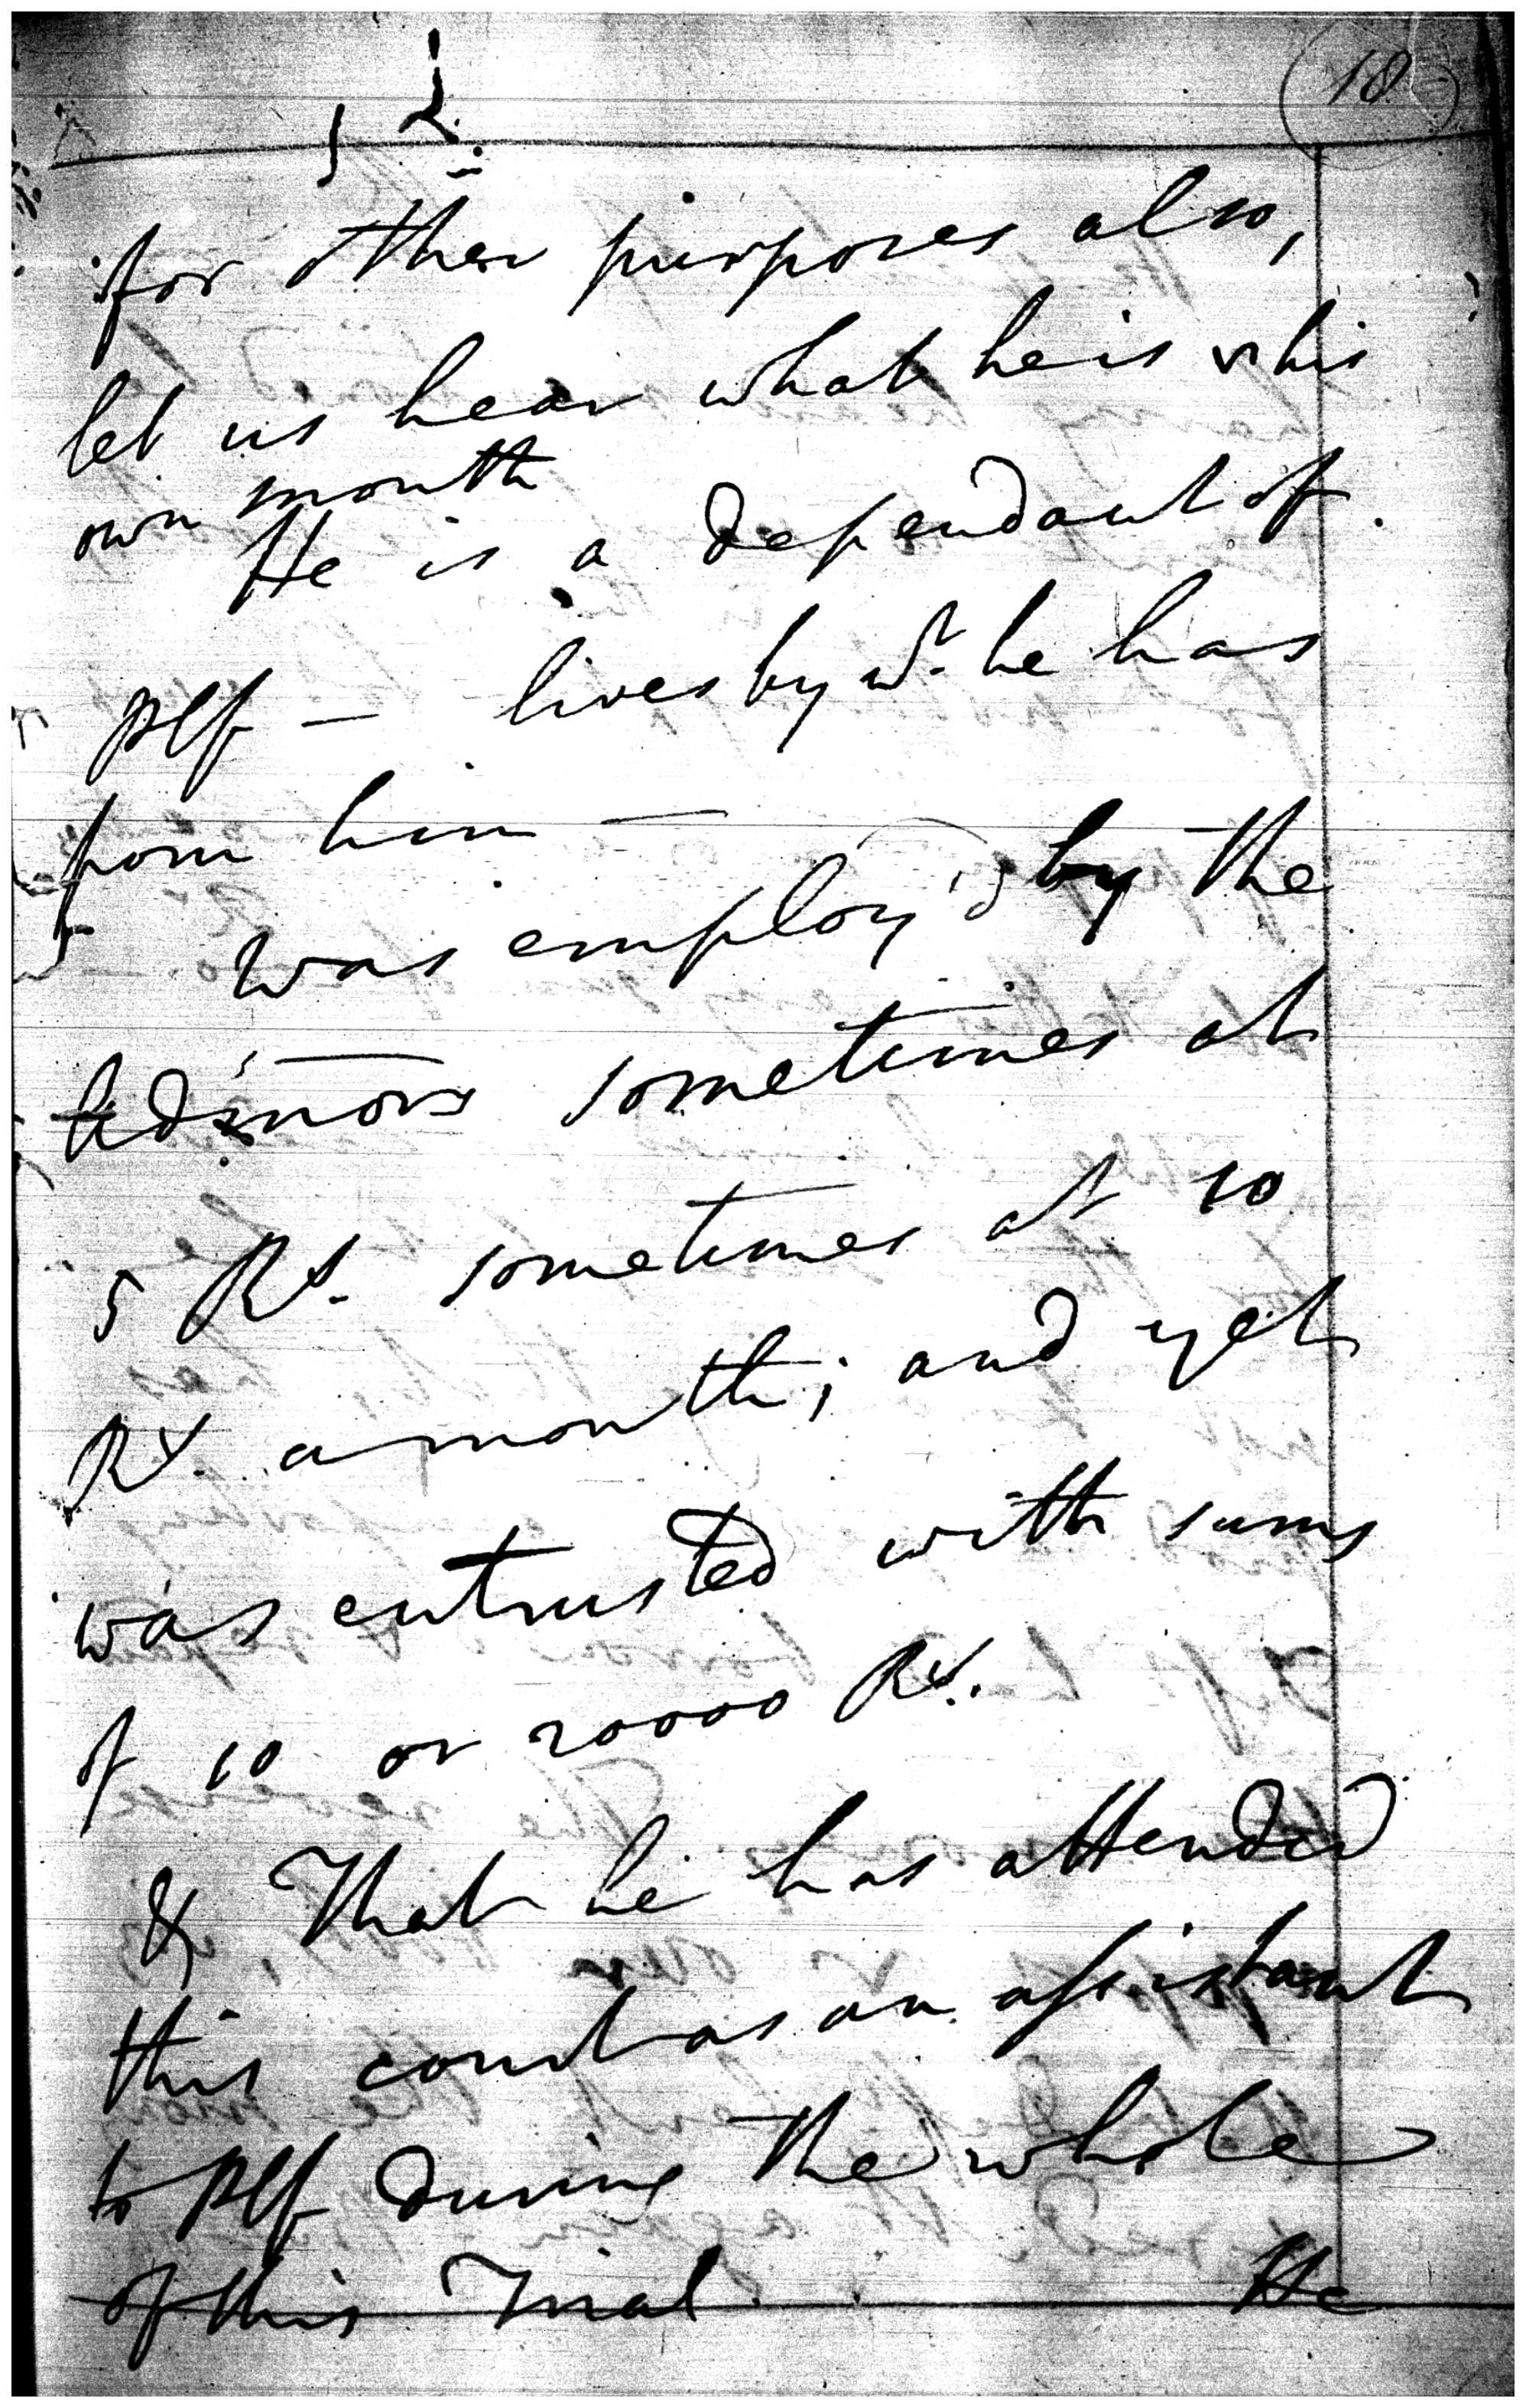 18
for other purposes also,
let us hear what he is his
own mouth
He is a dependant of
Plf — lives by wt. he has
from him —
was employ'd by the
Admors sometimes at
5 Rs. sometimes at 10
Rs. a month; and yet
was entrusted with sums
of 10 or 20000 Rs.
& That he has attended
this court as an assistant
to Plf during the whole
of this Trial. He